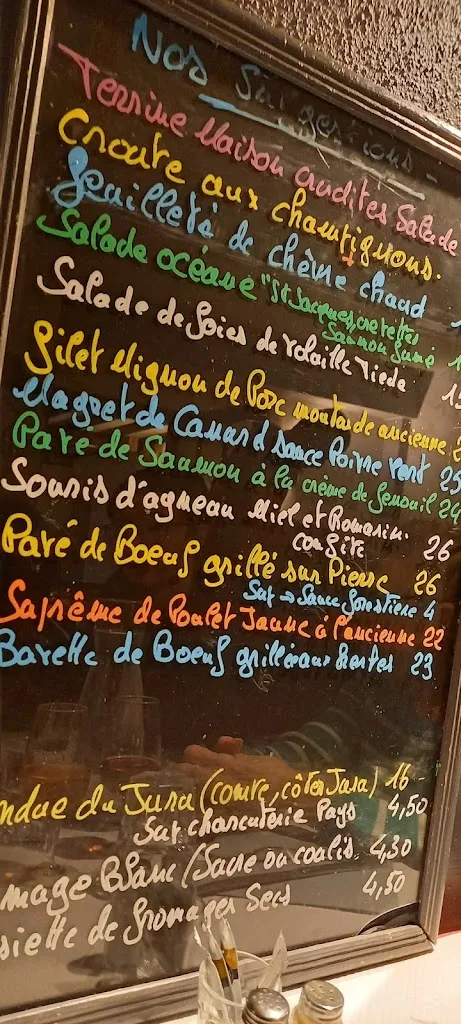 Nos Suggestions -
Terrine Maison crudités Salade
Croute aux champignons.
feuilleté de chèvre chaud 1
Salade océane "St Jacques, crevettes
Saumon fumé 1
Salade de foies de Volaille Tiède 15
Filet Mignon de Porc moutarde ancienne 2
Magret de Canard sauce Poivre Vert 25
Pavé de Saumon à la crème de fenouil 24
Souris d'agneau Miel et Romarin. 26
confite
Pavé de Boeuf grillé sur Pierre 26
Sup → Sauce forestière 4
Suprême de Poulet Jaune à l'ancienne 22
Bavette de Boeuf grillée aux herbes 23
ndue du Jura (comté, côtes Jura) 16 -
Sup charcuterie Pays 4,50
mage Blanc (Sucre ou coulis. 4,30
siette de fromages Secs 4,50